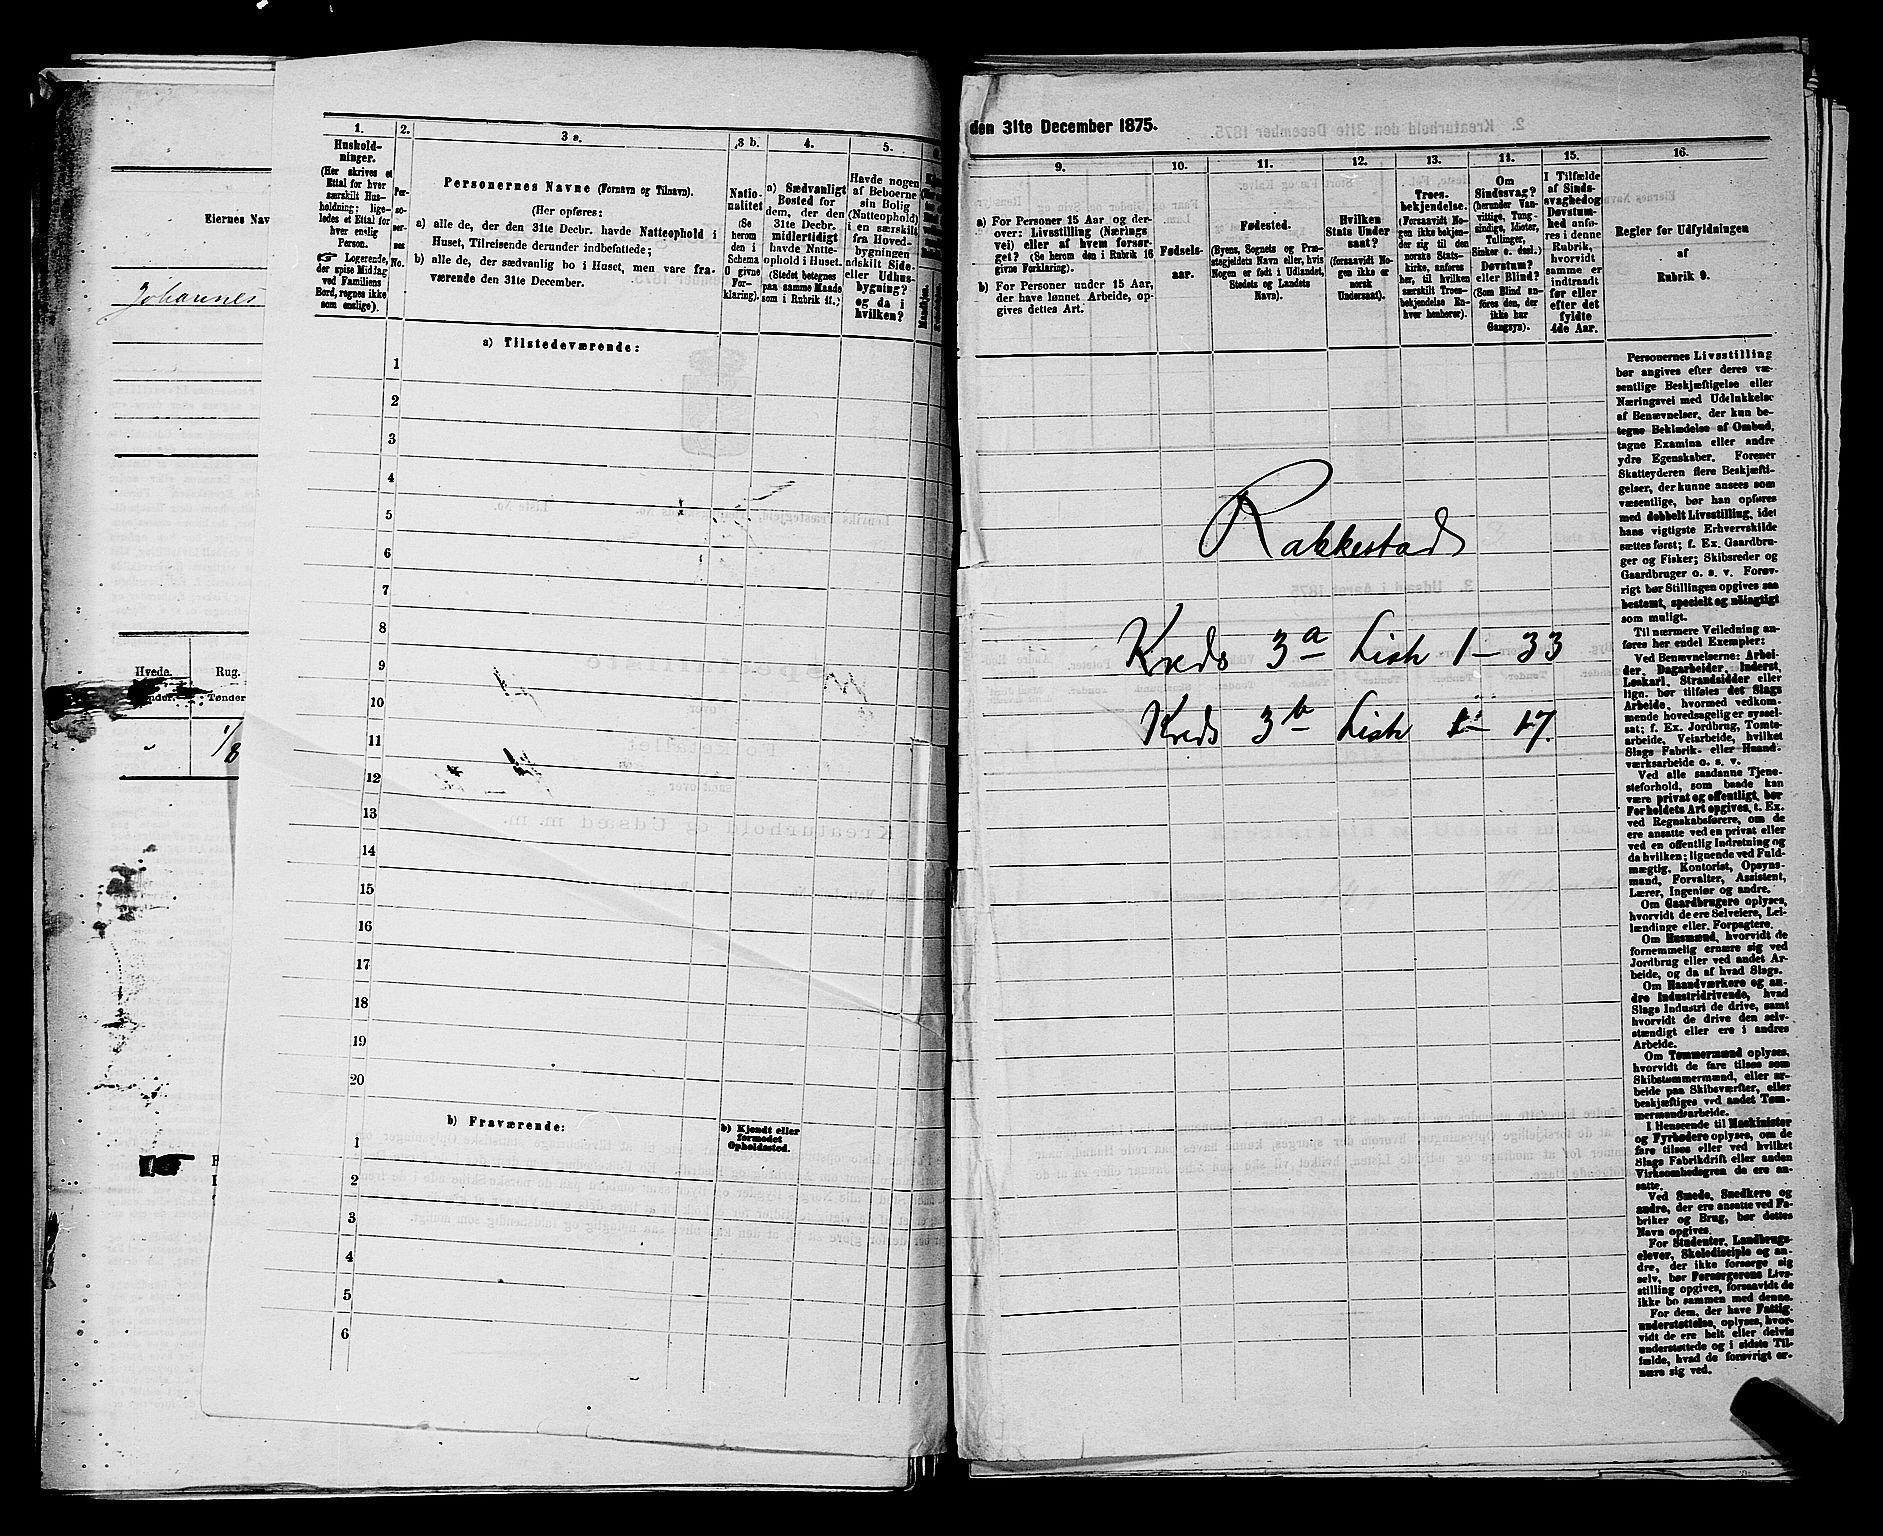 Eiernes Nav
Johannes
Hvede.
Rug.
Tønder.
Tønder
"
1/8
1.
Hushold-
ninger.
(Her skrives et
Ettal for hver
særskilt Hus-
holdning; lige-
ledes et Ettal for
hver enslig
Person.
☛ Logerende,
der spise Middag
ved Familiens
Bord, regnes ikke
som enslige).
2.
Per-
so-
ner-
nes
No.
3 a.
Personernes Navne (Fornavn og Tilnavn).
(Her opføres:
a) alle de, der den 31te Decbr. havde Natteophold i
Huset, Tilreisende derunder indbefattede;
b) alle de, der sædvanlig bo i Huset, men vare fra-
værende den 31te December.
3 b.
Natio-
nalitet
(Se
herom
den i
Schema
0 givne
For-
klaring).
4.
a) Sædvanligt
Bosted for
dem, der den
31te Decbr.
midlertidigt
havde Natte-
ophold i Huset.
(Stedet betegnes
paa samme Maade
som i Rubrik 11.)
5.
Havde nogen
af Beboerne
sin Bolig
(Natteophold)
i en særskilt
fra Hoved-
bygningen
adskilt Side-
eller Udhus-
bygning?
og da i
hvilken?
Mandkjøn.
a) Tilstedeværende:
1
2
3
4
5
6
7
8
9
10
11
12
13
14
15
16
17
18
19
20
b) Fraværende:
b) Kjendt eller
formodet
Opholdssted.
1
2
3
4
5
6
den 31te December 1875.
9.
a) For Personer 15 Aar og der-
over: Livsstilling (Nærings
vei) eller af hvem forsør-
get? (Se herom den i Rubrik 16
givne Forklaring).
b) For Personer under 15 Aar,
der have lønnet Arbeide, op-
gives dettes Art.
10.
Fødsels-
aar.
11.
Fødested.
(Byens, Sognets og Præ-
stegjeldets Navn eller, hvis
Nogen er født i Udlandet,
Stedets og Landets
Navn).
12.
Hvilken
Stats Under
saat?
(forsaavidt No-
gen ikke er
norsk
Undersaat).
13.
Troes-
bekjendelse.
(Forsaavidt No-
gen ikke bekjen-
der sig til den
norske Stats-
kirke, anføres
her, til hvilken
særskilt Troes-
bekjendelse En-
hver henhører).
14.
Om
Sindssvag?
(herunder Van-
vittige, Tung-
sindige, Idioter,
Tullinger,
Sinker o. desl.).
Døvstum?
eller Blind?
(Som Blind an-
føres den, der
ikke har
Gangsyn).
15.
I Tilfælde
af Sinds-
svaghed og
Døvstum-
hed anfø-
res i denne
Rubrik,
hvorvidt
samme er
indtraadt
før eller
efter det
fyldte
4de Aar.
16.
Regler for Udfyldningen
af
Rubrik 9.
Rakkestad
Kreds 3a Liste 1 — 33
Kreds 3b Liste 1 — 17.
Personernes Livsstilling
bør angives efter deres væ-
sentlige Beskjæftigelse eller
Næringsvei med Udelukkelse
af Benævnelser, der kun be-
tegne Beklædelse af Ombud,
tagne Examina eller andre
ydre Egenskaber. Forener
Skatteyderen flere Beskjæfti-
gelser, der kunne ansees som
væsentlige, bør han opføres
med dobbelt Livsstilling, idet
hans vigtigste Erhvervskilde
sættes først; f. Ex. Gaardbru-
ger og Fisker; Skibsreder og
Gaardbruger o. s. v. Forøv-
rigt bør Stillingen opgives saa
bestemt, specielt og nøiagtigt
som muligt.
Til nærmere Veiledning an-
føres her endel Exempler:
Ved Benævnelserne: Arbei-
der, Dagarbeider, Inderst,
Løskarl, Strandsidder eller
lign. bør tilføies det Slags
Arbeide, hvormed vedkom-
mende hovedsagelig er syssel-
sat; f. Ex. Jordbrug, Tomte-
arbeide, Veiarbeide, hvilket
Slags Fabrik- eller Haand-
værksarbeide o. s. v.
Ved alle saadanne Tjene-
steforhold, som baade kan
være privat og offentligt, bør
Forholdets Art opgives, t. Ex.
ved Regnskabsførere, om de
ere ansatte ved en privat eller
ved en offentlig Indretning og
da hvilken; lignende ved Fuld-
mægtig, Kontorist, Opsyns-
mand, Forvalter, Assistent,
Lærer, Ingeniør og andre.
Om Gaardbrugere oplyses,
hvorvidt de ere Selveiere, Lei-
lændinge eller Forpagtere.
Om Husmænd, hvorvidt de
fornemmelig ernære sig ved
Jordbrug eller ved andet Ar-
beide, og da af hvad Slags.
Om Haandværkere og an-
dre Industridrivende, hvad
Slags Industri de drive, samt
hvorvidt de drive den selv-
stændigt eller ere i andres
Arbeide.
Om Tømmermænd oplyses,
hvorvidt de fare tilsøs som
Skibstømmermænd, eller ar-
beide paa Skibsværfter, eller
beskjæftiges ved andet Tøm-
mermandsarbeide.
I Henseende til Maskinister
og Fyrbødere oplyses, om de
fare tilsøs eller ved hvilket
Slags Fabrikdrift eller anden
Virksomhedsgren de ere an-
satte.
Ved Smede, Snedkere og
andre, der ere ansatte ved Fa-
briker og Brug, bør dettes
Navn opgives.
For Studenter, Landbrugs-
elever, Skoledisciple og an-
dre, der ikke forsørge sig
selv, bør Forsørgerens Livs-
stilling opgives, forsaavidt de
ikke bo sammen med denne.
For dem, der have Fattig-
understøttelse, oplyses, hvor-
vidt de ere helt eller delvis
understøttede og i sidste Til-
fælde, hvad de forøvrigt er-
nære sig ved.